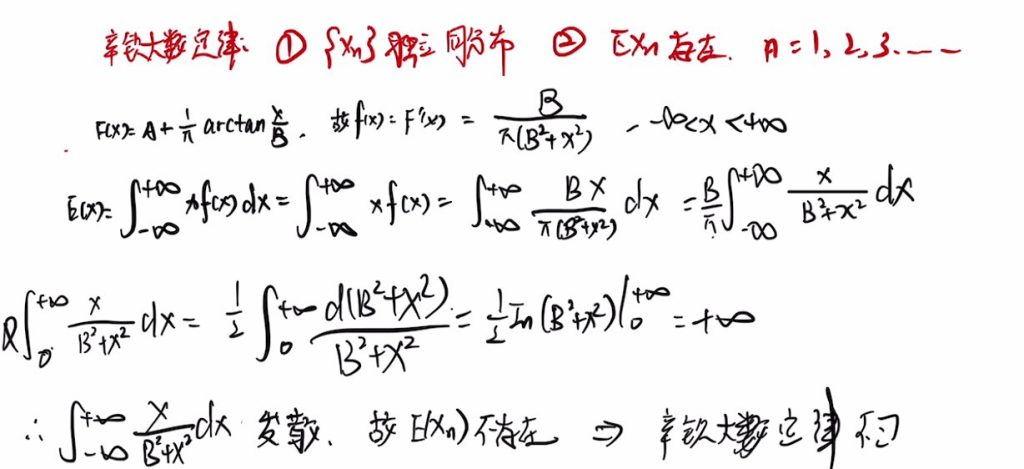 辛钦大数定律: ① {Xn} 独立同分布 ② EXn 存在. n = 1, 2, 3. ...
F(x) = A + 1/π arctan x/B. 故 f(x) = F'(x) = B/π(B²+x²), -∞<x<+∞
E(X)= ∫_{-∞}^{+∞} x f(x) dx = ∫_{-∞}^{+∞} x f(x) = ∫_{-∞}^{+∞} Bx/π(B²+x²) dx = B/π ∫_{-∞}^{+∞} x/B²+x² dx
∫_0^{+∞} x/B²+x² dx = 1/2 ∫_0^{+∞} d(B²+x²)/B²+x² = 1/2 ln(B²+x²)|_0^{+∞} = +∞
∴ ∫_{-∞}^{+∞} x/B²+x² dx 发散. 故 E(Xn) 不存在 ⇒ 辛钦大数定律不